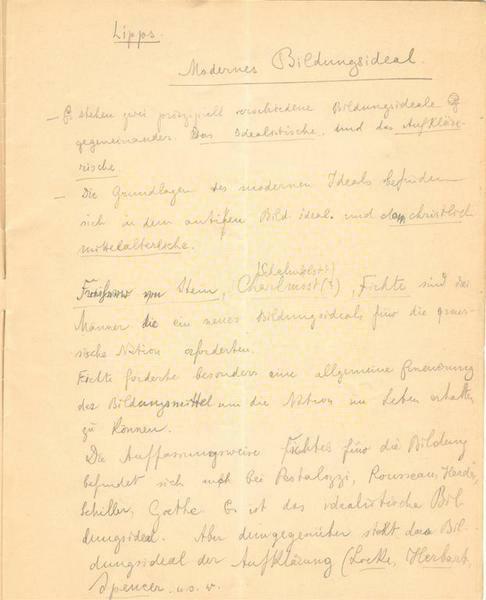 Lipps.
Modernes Bildungsideal.
– Es stehen zwei prinzipiell verschiedene Bildungsideale
gegeneinander. Das Idealistische, und das Aufkläre-
rische
– Die Grundlagen des modernen Ideals befinden
sich in dem antiken Bild. ideal. und dem christlich
mittelalterliche.
Freiherr von Stein, (?), Fichte sind die
Männer die ein neues Bildungsideals für die
sische Nation erforderten.
Fichte forderte besonders eine allgemeine Erneuerung
des Bildungsmittel um die Nation im Leben erhalten
zu können.
Die Auffassungsweise Fichtes für die Bildung
befindet sich auch bei Pestalozzi, Rousseau, Herder,
Schiller, Goethe Es ist das idealistische Bil-
dungsideal. Aber demgegenüber steht das Bil-
dungsideal der Aufklärung (Locke, Herbart,
Spencer. u. s. w.